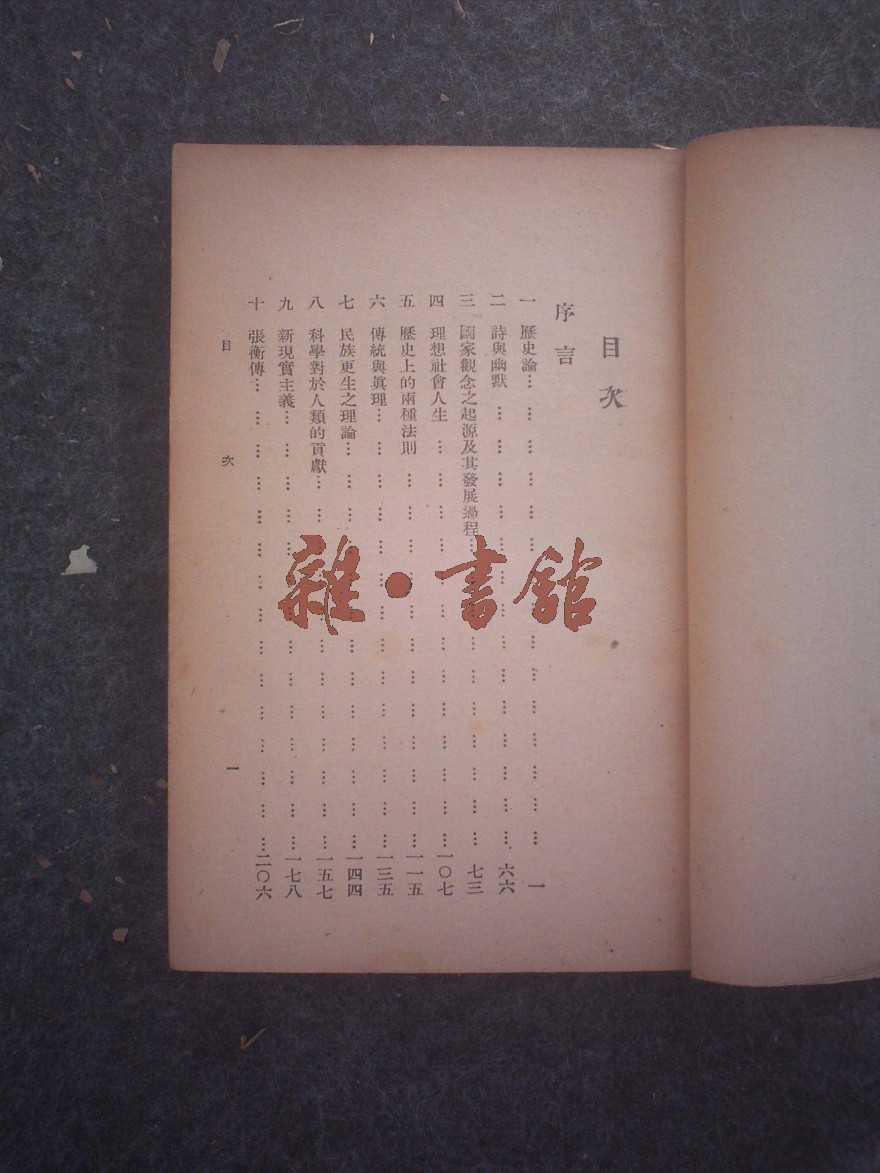 目次
序言
一 歷史論………………………………………………一
二 詩與幽默………………………………………………六六
三 國家觀念之起源及其發展過程………………………………七三
四 理想社會人生………………………………………………一〇七
五 歷史上的兩種法則………………………………………………一一五
六 傳統與眞理………………………………………………一三五
七 民族更生之理論………………………………………………一四四
八 科學對於人類的貢獻………………………………………一五七
九 新現實主義………………………………………………一七八
十 張衡傳………………………………………………二〇六
目次 一
雜·書館